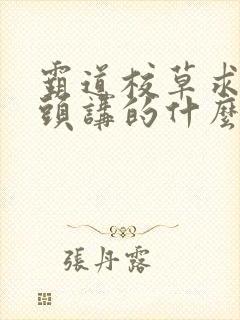 霸道校草求
頭講的什麼
張丹露